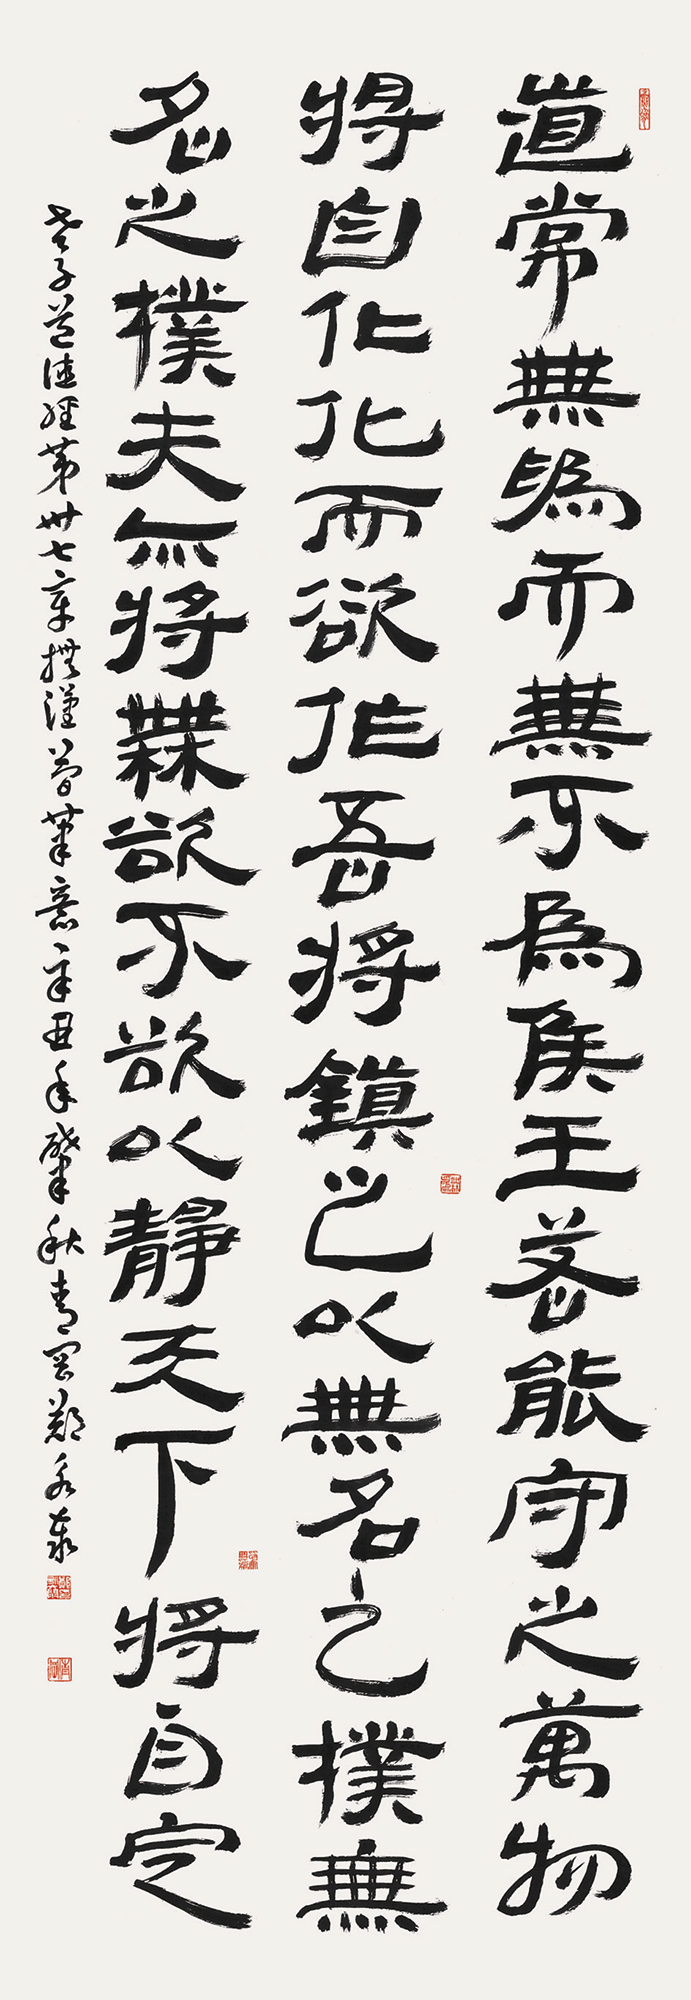 道常無為而無不為侯王若能守之萬物
將自化化而欲作吾將鎮之以無名之樸無
名之樸夫亦將無欲不欲以靜天下將自定
老子道德經第卅七章橅漢簡筆意辛丑年肇秋青鄭永泰